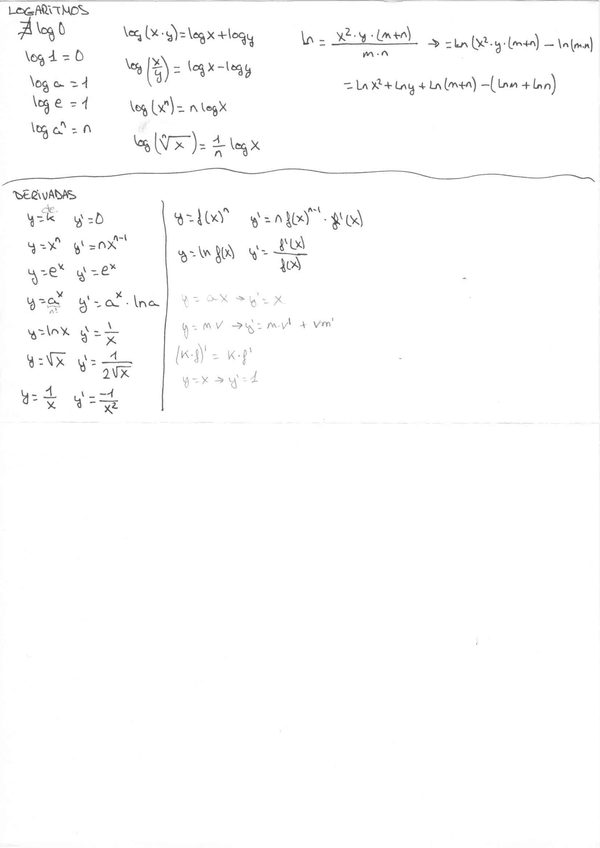 LOGARITMOS
∄ log 0
log 1 = 0
log a = 1
log e = 1
log aⁿ = n
log(x·y) = log x + log y
log(x/y) = log x - log y
log(xⁿ) = n log x
log(ⁿ√x) = 1/n log x
ln = x²·y·(m+n) / m·n → = ln(x²·y·(m+n) - ln(m·n)
= ln x² + ln y + ln(m+n) - (ln m + ln n)
DERIVADAS
cte.
y = k y' = 0
y = xⁿ y' = nxⁿ⁻¹
y = eˣ y' = eˣ
y = aˣ y' = aˣ · ln a
nº
y = ln x y' = 1/x
y = √x y' = 1/2√x
y = 1/x y' = -1/x²
y = f(x)ⁿ y' = n f(x)ⁿ⁻¹ · f'(x)
y = ln f(x) y' = f'(x)/f(x)
y = ax → y' = x
y = m·v → y' = m·v' + vm'
(k·f)' = k·f'
y = x → y' = 1